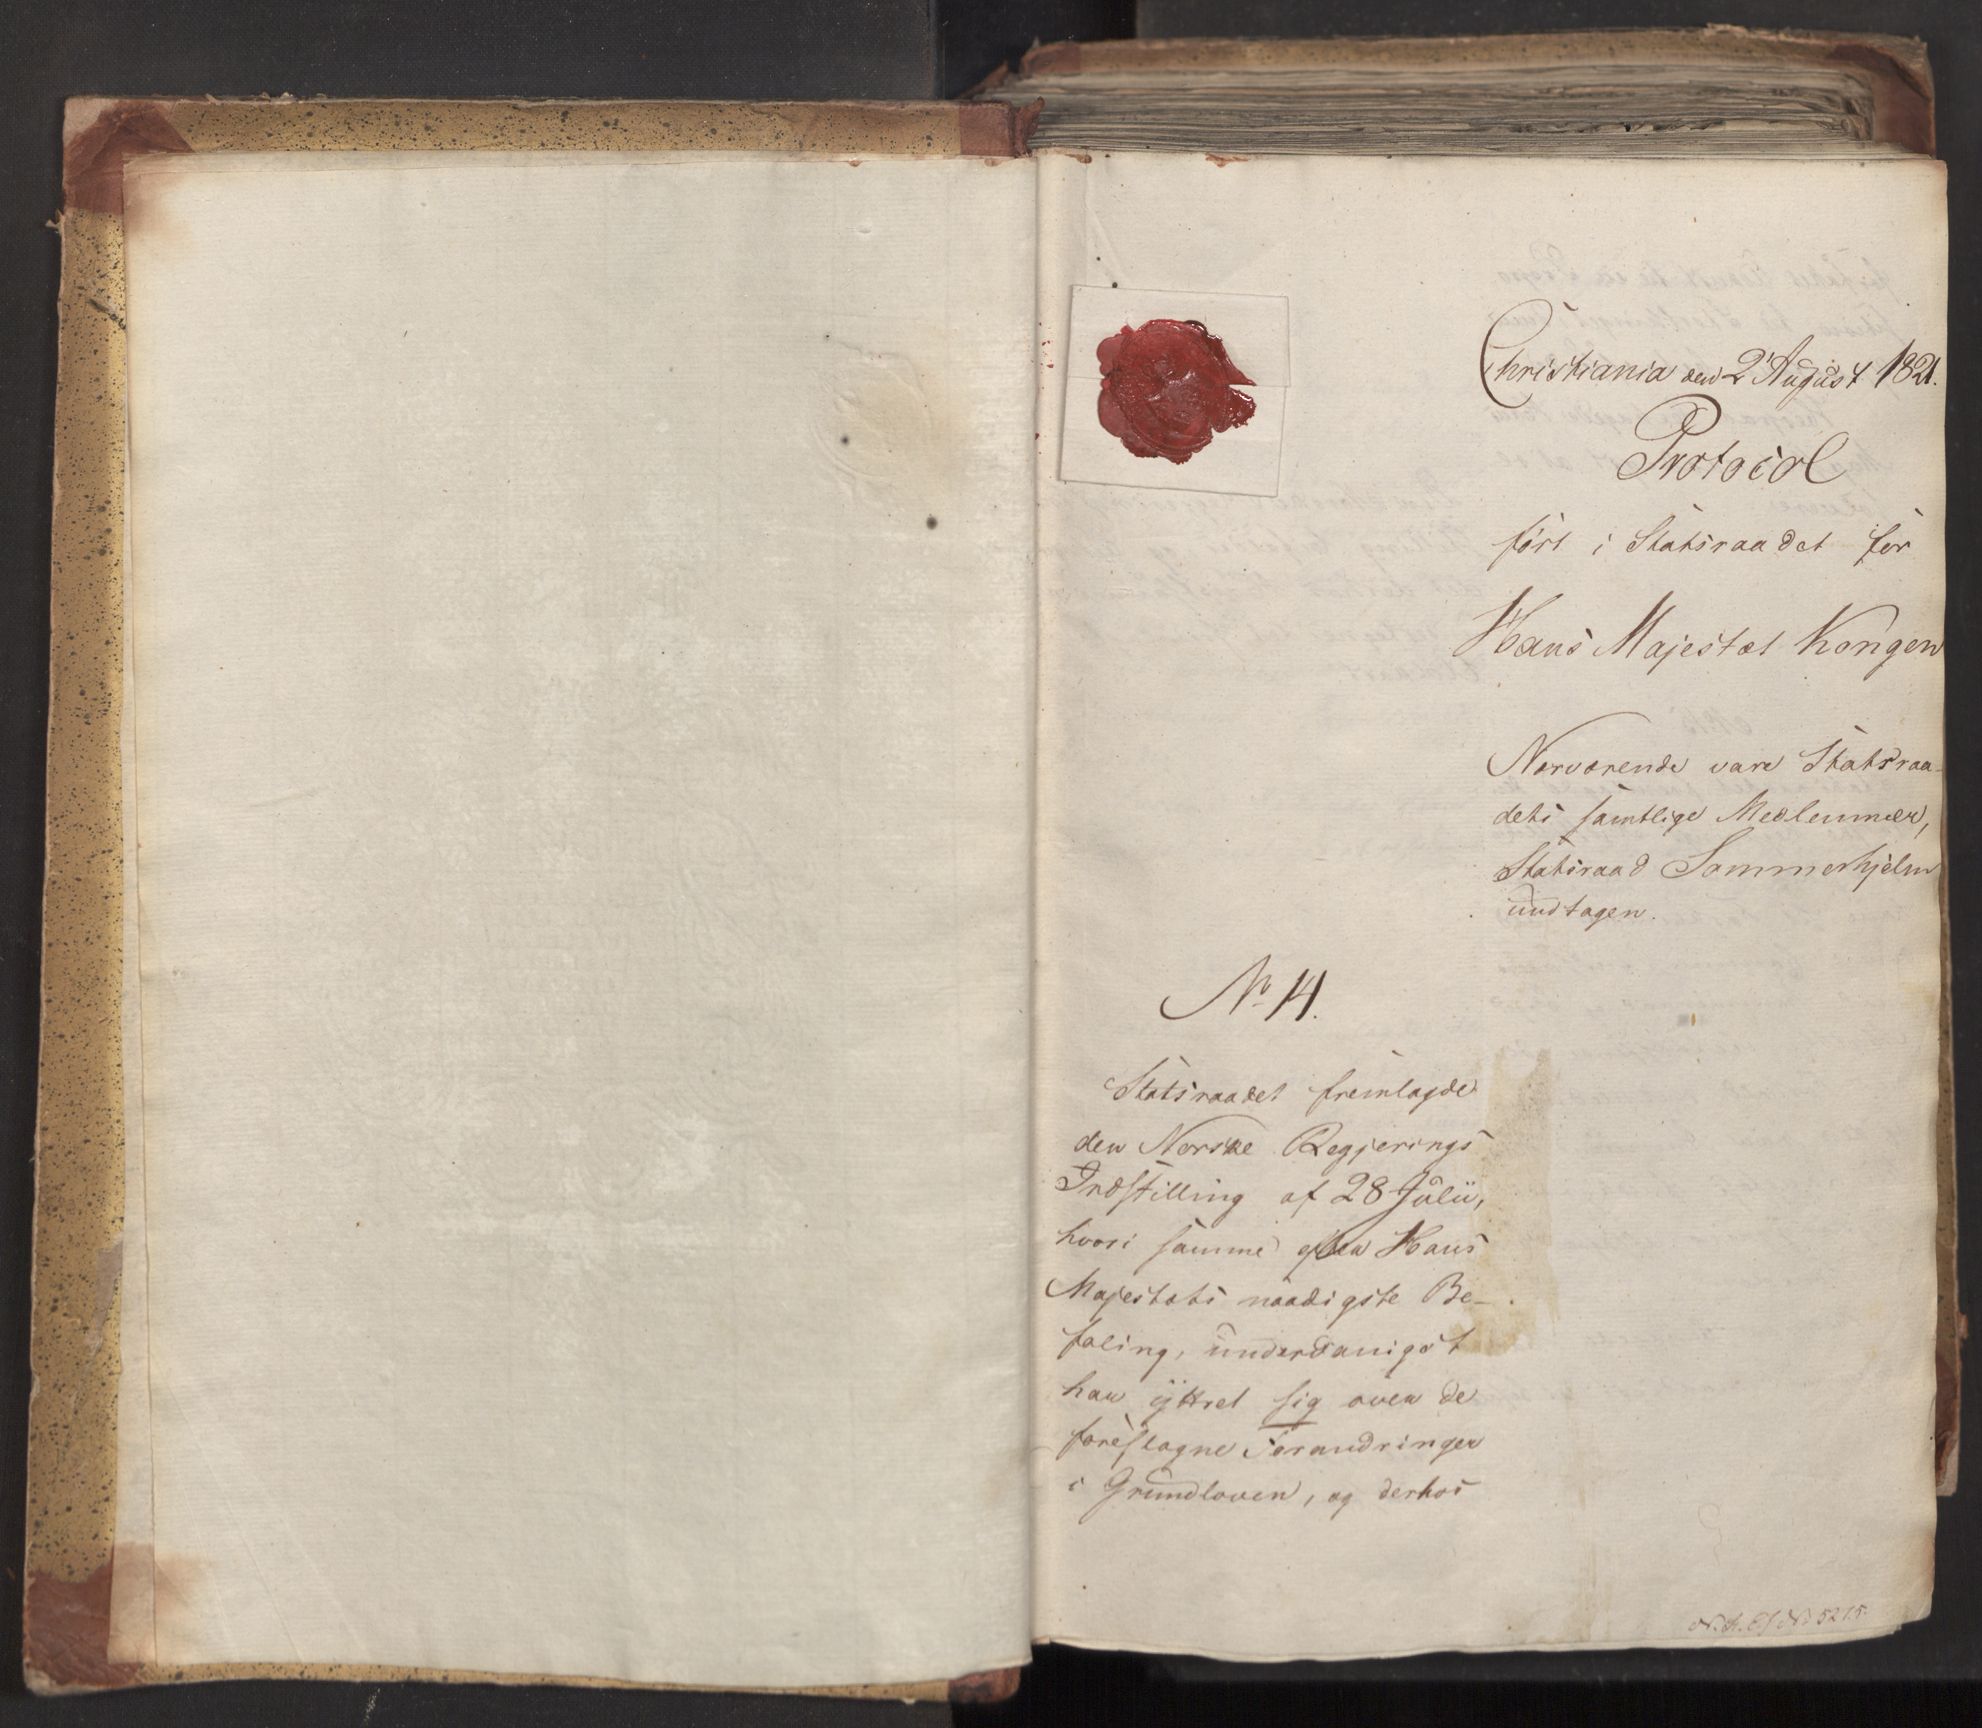 Christiania den 2 August 1821.
Protocol
ført i Statsraadet for
Hans Majestæt Kongen
Nærværende vare Statsraa-
dets samtlige Medlemmer,
Statsraad Sommerhjelm
undtagen.
No 14.
Statsraadet fremlagde
den Norske Regjerings
Indstilling af 28 Julii,
hvori samme efter Hans
Majestæts naadigste Be-
faling, underdanigst
har yttret sig over de
foreslagne Forandringer
i Grundloven, og derhos
No 5215.